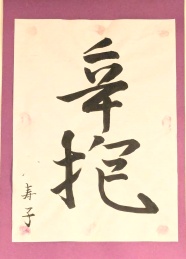 辛抱
寿子